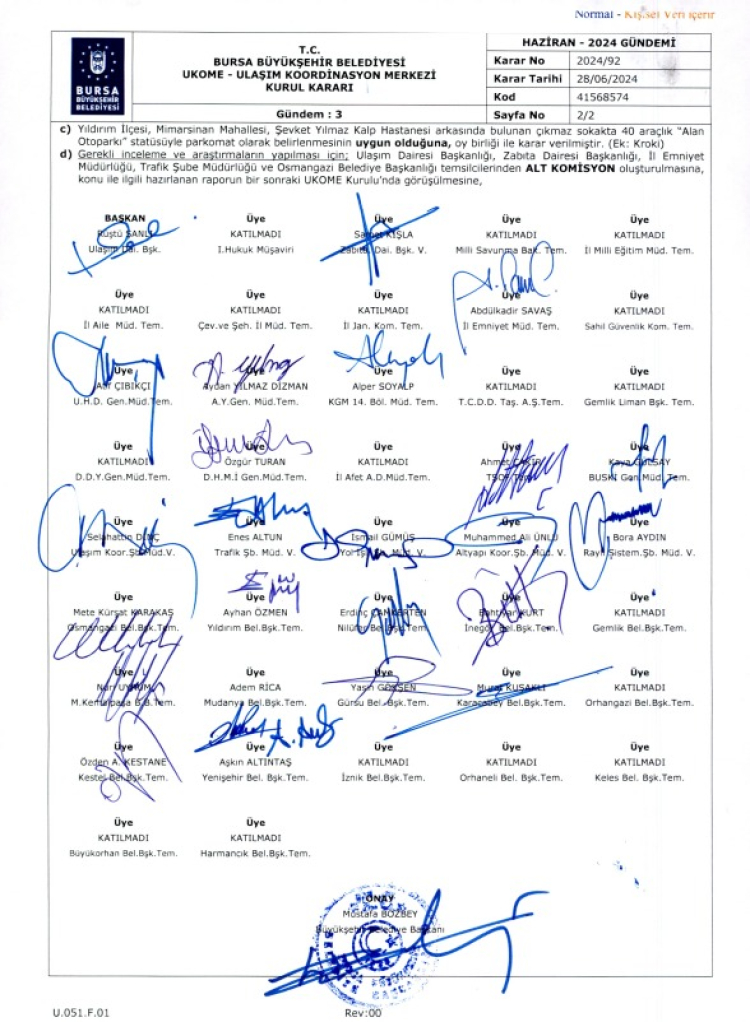 Normal - Kişisel Veri içerir
BURSA
BÜYÜKŞEHİR
BELEDİYESİ
T.C.
BURSA BÜYÜKŞEHİR BELEDİYESİ
UKOME - ULAŞIM KOORDİNASYON MERKEZİ
KURUL KARARI
Gündem : 3
HAZİRAN - 2024 GÜNDEMİ
Karar No 2024/92
Karar Tarihi 28/06/2024
Kod 41568574
Sayfa No 2/2
c) Yıldırım İlçesi, Mimarsinan Mahallesi, Şevket Yılmaz Kalp Hastanesi arkasında bulunan çıkmaz sokakta 40 araçlık “Alan
Otoparkı” statüsüyle parkomat olarak belirlenmesinin uygun olduğuna, oy birliği ile karar verilmiştir. (Ek: Kroki)
d) Gerekli inceleme ve araştırmaların yapılması için; Ulaşım Dairesi Başkanlığı, Zabıta Dairesi Başkanlığı, İl Emniyet
Müdürlüğü, Trafik Şube Müdürlüğü ve Osmangazi Belediye Başkanlığı temsilcilerinden ALT KOMİSYON oluşturulmasına,
konu ile ilgili hazırlanan raporun bir sonraki UKOME Kurulu'nda görüşülmesine,
BAŞKAN Üye Üye Üye Üye
Rüştü ŞANLI KATILMADI KIŞLA KATILMADI KATILMADI
Ulaşım Dai. Bşk. I.Hukuk Müşaviri Zabıta Dai. Bşk. V. Milli Savunma Bak. Tem. İl Milli Eğitim Müd. Tem.
Üye Üye Üye Üye Üye
KATILMADI KATILMADI KATILMADI Abdülkadir SAVAŞ KATILMADI
İl Aile Müd. Tem. Çev.ve Şeh. İl Müd. Tem. İl Jan. Kom. Tem. İl Emniyet Müd. Tem. Sahil Güvenlik Kom. Tem.
Üye Üye Üye Üye Üye
ÇIBIKÇI Aydan YILMAZ DİZMAN Alper SOYALP KATILMADI KATILMADI
U.H.D. Gen.Müd.Tem. A.Y.Gen. Müd.Tem. KGM 14. Böl. Müd. Tem. T.C.D.D. Taş. A.Ş.Tem. Gemlik Liman Bşk. Tem.
Üye Üye Üye Üye Üye
KATILMADI Özgür TURAN KATILMADI Ahmet Kaya
D.D.Y.Gen.Müd.Tem. D.H.M.İ Gen.Müd.Tem. İl Afet A.D.Müd.Tem. BUSKİ Gen.Müd. Tem.
Üye Üye Üye Üye Üye
Selahattin DİNÇ Enes ALTUN İsmail GÜMÜŞ Muhammed Ali ÜNLÜ Bora AYDIN
Ulaşım Koor.Şb.Müd.V. Trafik Şb. Müd. V. Müd. V. Altyapı Koor.Şb. Müd. V. Raylı Sistem.Şb. Müd. V.
Üye Üye Üye Üye Üye
Mete Kürşat KARAKAŞ Ayhan ÖZMEN Erdinç KURT KATILMADI
Osmangazi Bel.Bşk.Tem. Yıldırım Bel.Bşk.Tem. Nilüfer Bel.Bşk.Tem. İnegöl Bel.Bşk.Tem. Gemlik Bel.Bşk.Tem.
Üye Üye Üye Üye Üye
Adem RİCA Yasin Murat KUŞAKLI KATILMADI
M.Kemalpaşa B.B.Tem. Mudanya Bel.Bşk.Tem. Gürsu Bel.Bşk.Tem. Karacabey Bel.Bşk.Tem. Orhangazi Bel.Bşk.Tem.
Üye Üye Üye Üye Üye
Özden A. KESTANE Aşkın ALTINTAŞ KATILMADI KATILMADI KATILMADI
Kestel Bel.Bşk.Tem. Yenişehir Bel. Bşk.Tem. İznik Bel.Bşk.Tem. Orhaneli Bel. Bşk.Tem. Keles Bel. Bşk.Tem.
Üye Üye
KATILMADI KATILMADI
Büyükorhan Bel.Bşk.Tem. Harmancık Bel.Bşk.Tem.
ONAY
Mustafa BOZBEY
Büyükşehir Belediye Başkanı
U.051.F.01 Rev:00